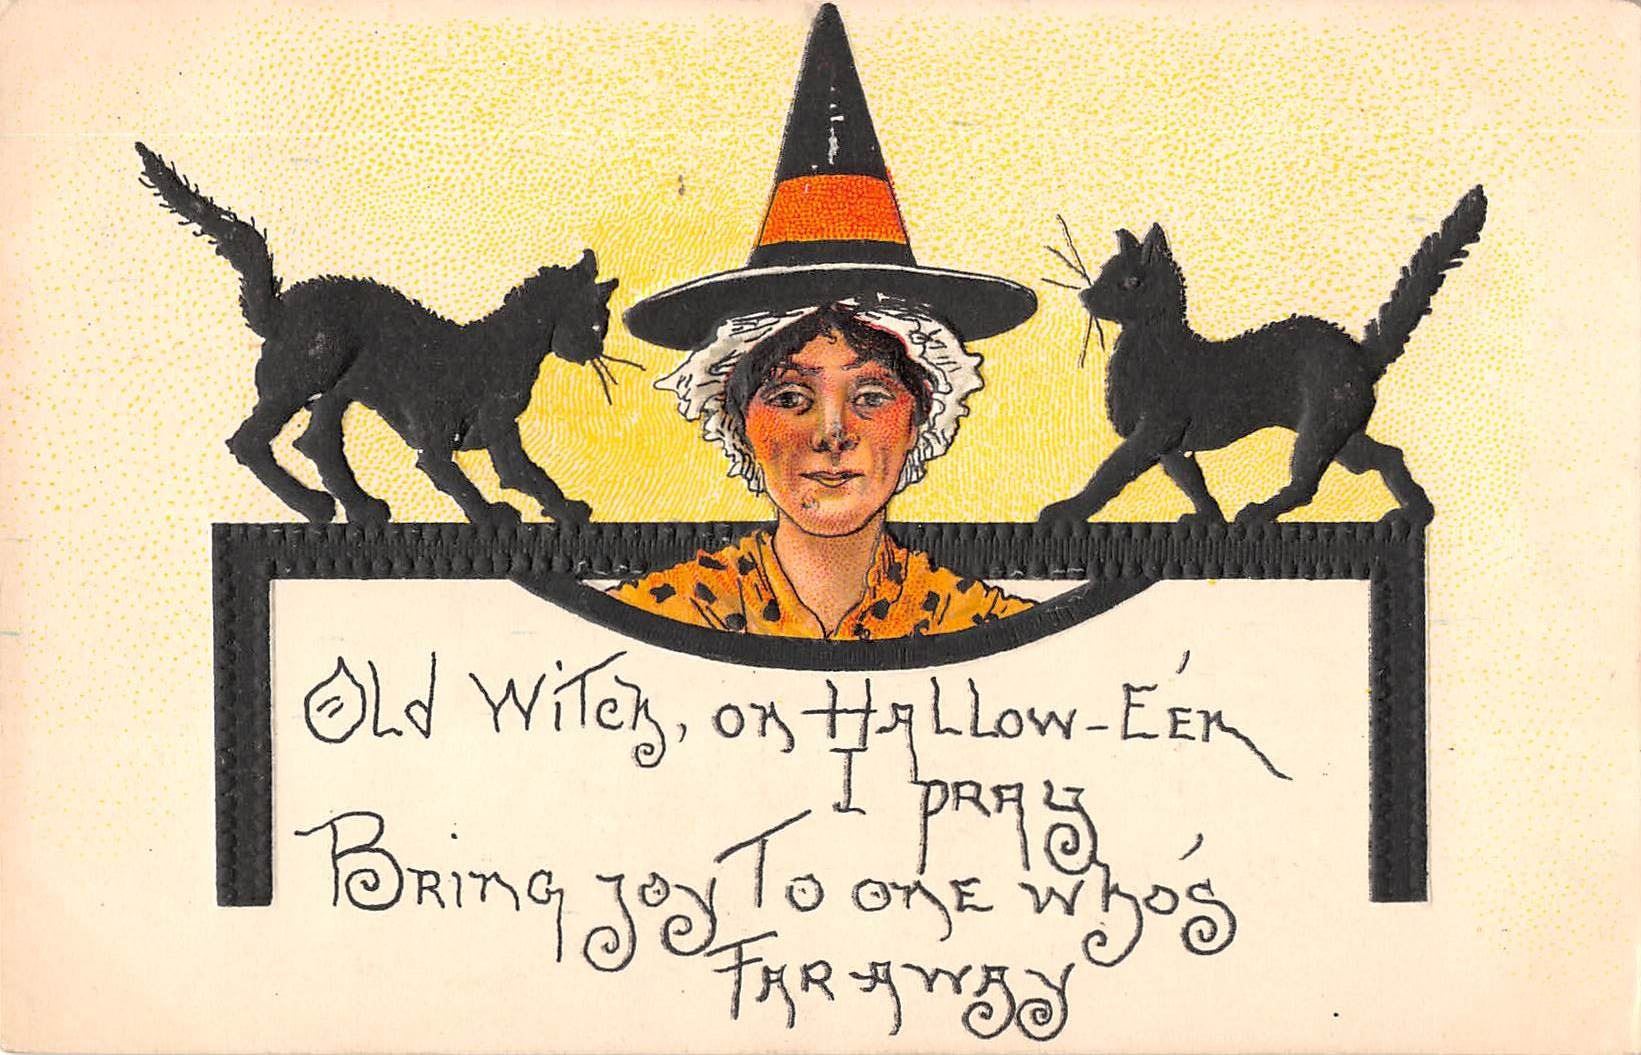 Old Witch, on Hallow-E'en
I pray
Bring joy To one who's
Far away